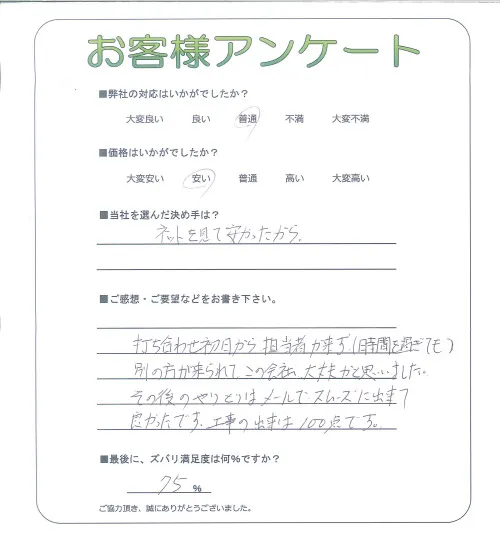 お客様アンケート
■弊社の対応はいかがでしたか?
大変良い 良い 普通 不満 大変不満
■価格はいかがでしたか?
大変安い 安い 普通 高い 大変高い
■当社を選んだ決め手は?
ネットを見て安かったから。
■ご感想・ご要望などをお書き下さい。
打ち合わせ初日から担当者が来ず(1時間を過ぎても)
別の方が来られて、この会社、大丈夫かと思いました。
その後のやりとりはメールでスムーズに出来て
良かったです。工事の出来は100点です。
■最後に、ズバリ満足度は何%ですか?
75 %
ご協力頂き、誠にありがとうございました。